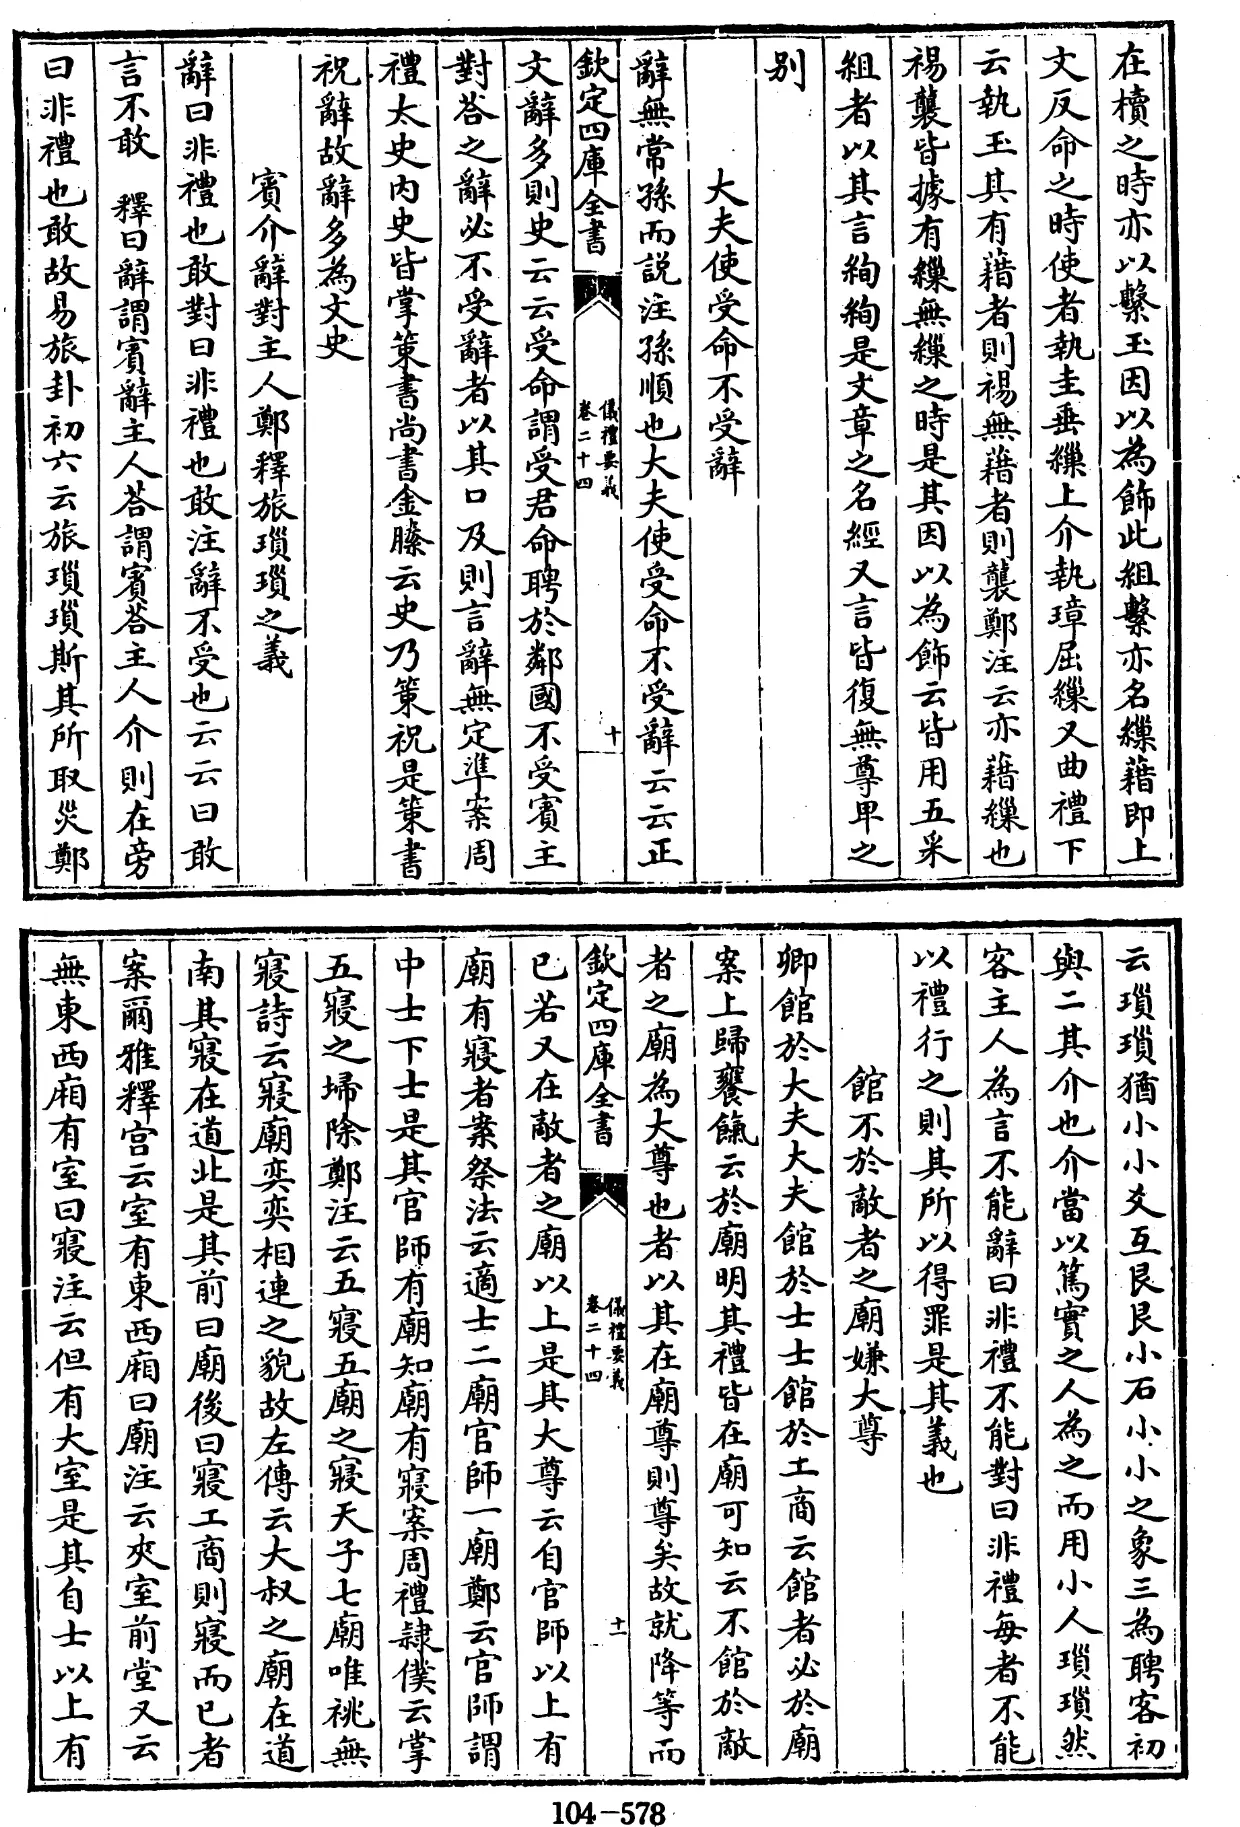 在櫝之時亦以繫玉因以為飾此組繫亦名繅藉即上
文反命之時使者執圭垂繅上介執璋屈繅又曲禮下
云執玉其有藉者則裼無藉者則襲鄭注云亦藉繅也
裼襲皆據有繅無繅之時是其因以為飾云皆用五采
組者以其言絢絢是文章之名經又言皆復無尊卑之
别
大夫使受命不受辭
辭無常孫而説注孫順也大夫使受命不受辭云云正
欽定四庫全書
儀禮要義
卷二十四
十
文辭多則史云云受命謂受君命聘於鄰國不受賓主
對荅之辭必不受辭者以其口及則言辭無定準案周
禮太史内史皆掌策書尚書金縢云史乃策祝是策書
祝辭故辭多為文史
賓介辭對主人鄭釋旅瑣瑣之義
辭曰非禮也敢對曰非禮也敢注辭不受也云云曰敢
言不敢 釋曰辭謂賓辭主人荅謂賓荅主人介則在旁
曰非禮也敢故易旅卦初六云旅瑣瑣斯其所取災鄭
云瑣瑣猶小小爻互艮艮小石小小之象三為聘客初
與二其介也介當以篤實之人為之而用小人瑣瑣然
客主人為言不能辭曰非禮不能對曰非禮每者不能
以禮行之則其所以得罪是其義也
館不於敵者之廟嫌大尊
卿館於大夫大夫館於士士館於工商云館者必於廟
案上歸饔餼云於廟明其禮皆在廟可知云不館於敵
者之廟為大尊也者以其在廟尊則尊矣故就降等而
欽定四庫全書
儀禮要義
卷二十四
十一
已若又在敵者之廟以上是其大尊云自官師以上有
廟有寢者案祭法云適士二廟官師一廟鄭云官師謂
中士下士是其官師有廟知廟有寢案周禮隷僕云掌
五寢之埽除鄭注云五寢五廟之寢天子七廟唯祧無
寢詩云寢廟奕奕相連之貌故左傳云大叔之廟在道
南其寢在道北是其前曰廟後曰寢工商則寢而已者
案爾雅釋宫云室有東西廂曰廟注云夾室前堂又云
無東西廂有室曰寢注云但有大室是其自士以上有
104-578